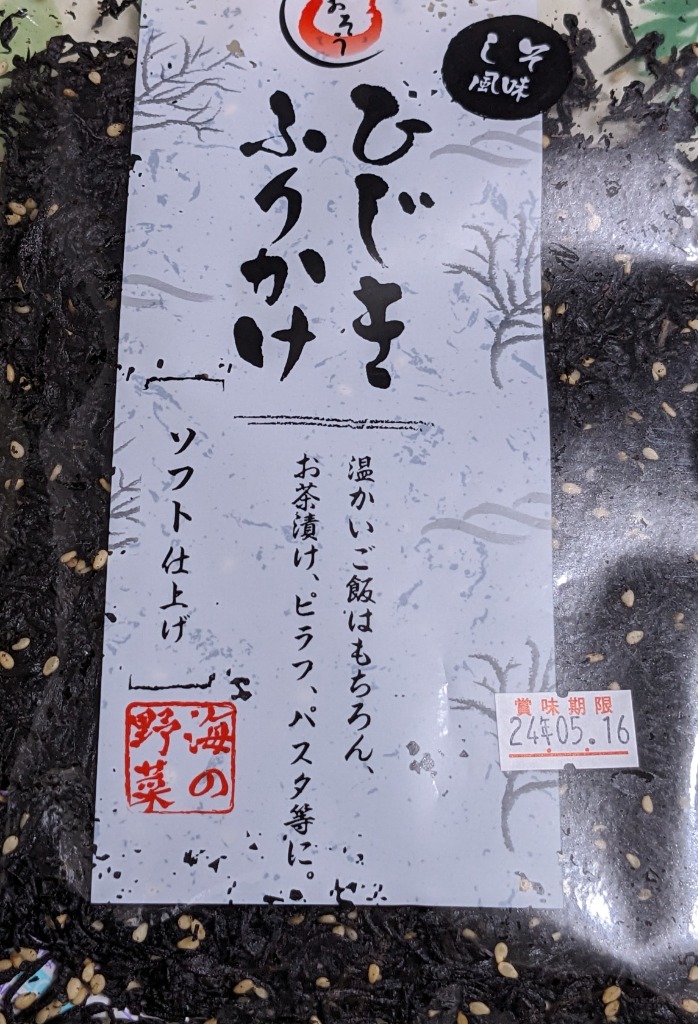 おそう
しそ
風味
ひじき
ふりかけ
温かいご飯はもちろん、
お茶漬け、ピラフ、パスタ等に。
ソフト仕上げ
海の
野菜
賞味期限
24年05.16